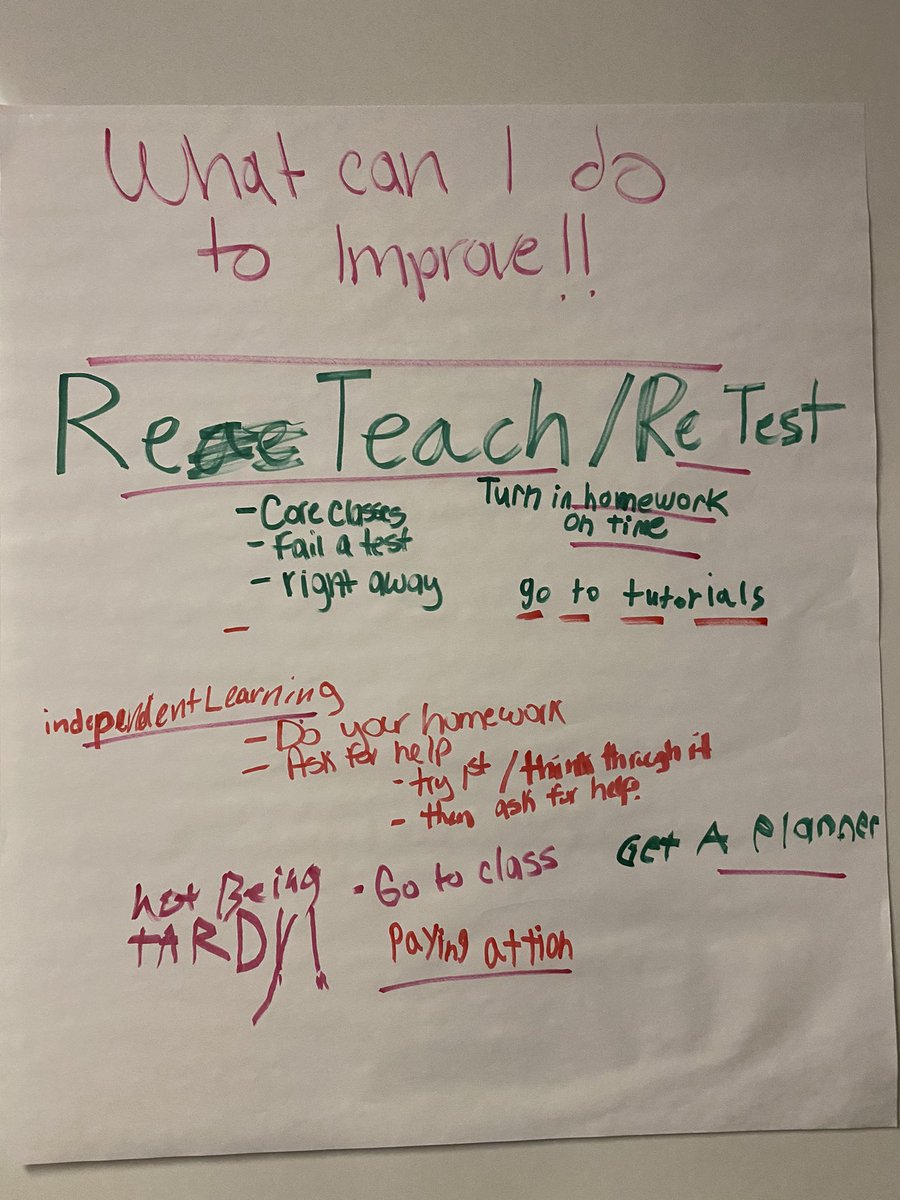 What can I do
to Improve!!
Re Teach / Re Test
- Core classes
- Fail a test
- right away
-
Turn in homework
on time
go to tutorials
independent Learning
- Do your homework
- Ask for help
- try 1st / think through it
- then ask for help.
Get A planner
not Being
tARDY!
· Go to class
Paying attion